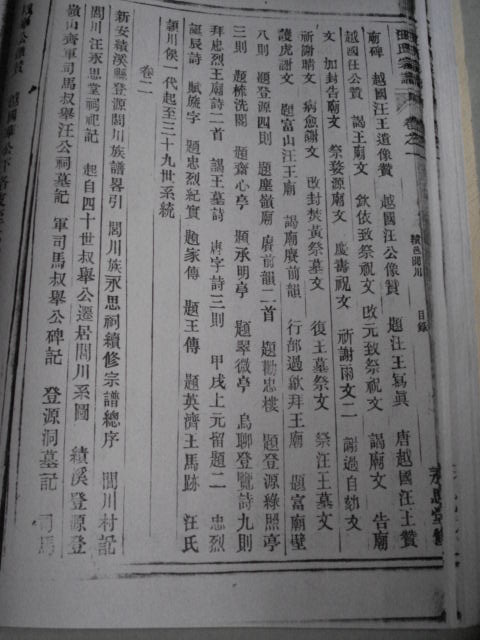 卷之一 績邑閭川 目錄 永思堂
廟碑 越國汪王道像贊 越國汪公像贊 題汪王寫眞 唐越國汪王贊
越國汪公贊 謁王廟文 欽依致祭祝文 改元致祭祝文 謁廟文 告廟
文 加封告廟文 祭婺源廟文 慶壽祝文 祈謝雨文二 謝過自劾文
祈謝晴文 病愈謝文 改封焚黃祭墓文 復王墓祭文 祭汪王墓文
護虎謝文 題富山汪王廟 謁廟賡前韻 行部過歙拜王廟 題富廟壁
八則 題登源四則 題塵嶺廟賡前韻二首 題勸忠樓 題登源綠照亭
三則 題梳洗閣 題齋心亭 題承明亭 題翠微亭 烏聊登覽詩九則
拜忠烈王廟詩二首 謁王墓詩 唐字詩三則 甲戌上元留題二 忠烈
誕辰詩 賦旄字 題忠烈紀實 題家傳 題王傳 題英濟王馬跡 汪氏
潁川侯一代起至三十九世系統
卷二
新安績溪縣登源閭川族譜畧引 閭川族永思祠續修宗譜總序 閭川村記
閭川汪永思堂祠祀記 起自四十世叔舉公遷居閭川系圖 績溪登源登
嶺山齊軍司馬叔舉汪公祠墓記 軍司馬叔舉公碑記 登源洞墓記 司馬